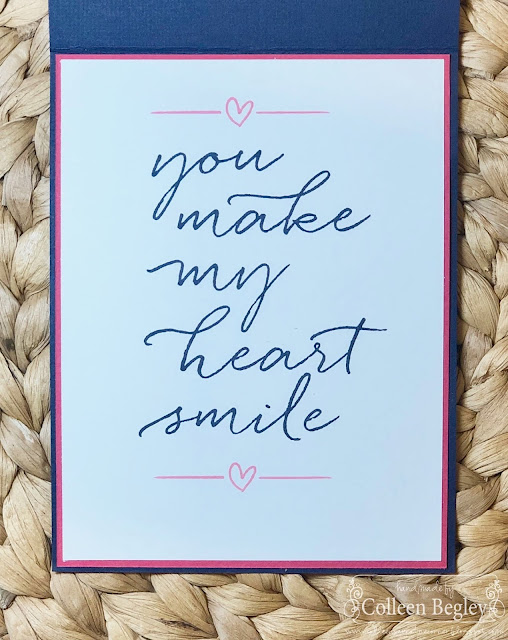 you
make
my
heart
smile
handmade by
Colleen Begley